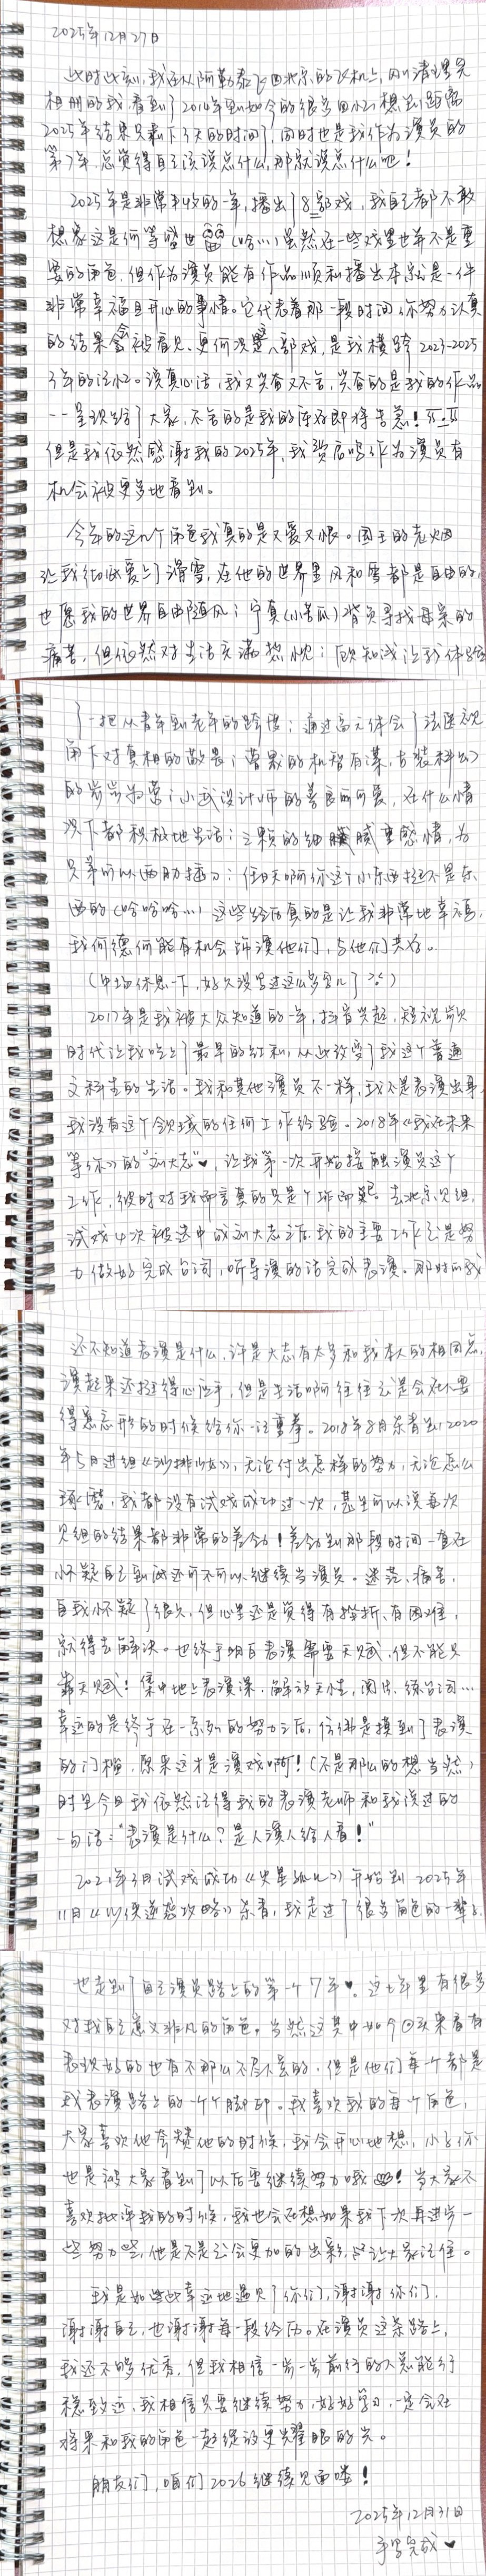 2025年12月27日
此时此刻,我正从阿勒泰飞回北京的飞机上,因清理
相册的我看到了2014年到如今的很多回忆想到距离
2025年结束只剩下3天的时间,同时也是我作为演员的
第7年,总觉得自己该说点什么,那就说点什么吧!
2025年是非常丰收的一年,播出了8部戏,我自己都不敢
想象这是何等盛世(哈…)虽然在一些戏里也并不是重
要的角色,但作为演员能有作品顺利播出本就是一件
非常幸福且开心的事情。它代表着那一段时间你努力认真
的结果会被看见,更何况是八部戏,是我横跨2023-2025
3年的记忆。说真心话,我又兴奋又不舍,兴奋的是我的作品
一一呈现给了大家,不舍的是我的库存即将告急!
但是我依然感谢我的2025年,我的作为演员有
机会被更多地看到。
今年的这几个角色我真的是又爱又恨。
让我彻底爱上了滑雪,在他的世界里风和雪都是自由的,
也愿我的世界自由随风;宁真(小苦瓜)背负寻找母亲的
痛苦,但依然对生活充满热忱;顾知诚让我体验
了一把从青年到老年的跨度;通过高元体会了法医视
角下对真相的敬畏;曹默的机智有谋,古装
的步步为营;小武设计师的善良可爱,在什么情
况下都积极地生活;三颗的细腻重感情,为
兄弟可以两肋插刀;任天啊你这个小东西挺不是东
西的(哈哈哈…)这些经历真的是让我非常地幸福,
我何德何能有机会饰演他们,与他们共存。
(中场休息一下,好久没写过这么多字儿了)
2017年是我被大众知道的一年,抖音兴起,短视频
时代让我吃上了最早的红利,从此改变了我这个普通
文科生的生活。我和其他演员不一样,我不是表演出身,
我没有这个领域的任何工作经验。2018年《我在未来
等你》的“刘大志”♥,让我第一次开始接触演员这个
工作,彼时对我而言真的只是个工作而已。去北京见组,
试戏4次被选中成刘大志之后,我的主要工作就是努
力做好完成台词,听导演的话完成表演。那时的我
还不知道表演是什么,许是大志有太多和我本人的相同点,
演起来还挺得心应手,但是生活啊往往就是会在你要
得意忘形的时候给你一记重拳。2018年8月杀青到2020
年5月进组《沙排少女》,无论付出怎样的努力,无论怎么
琢磨,我都没有试戏成功过一次,甚至可以说每次
见组的结果都非常的差劲!差劲到那段时间一直在
怀疑自己到底还可不可以继续当演员。迷茫、痛苦,
自我怀疑了很久,但心里还是觉得有挫折、有困难,
就得去解决。也终于明白表演需要天赋,但不能只
靠天赋!集中地上表演课,解放天性,阅片,练台词…
幸运的是终于在一系列的努力之后,仿佛是摸到了表演
的门槛,原来这才是演戏啊!(不是那么的想当然)
时至今日我依然记得我的表演老师和我说过的
一句话:“表演是什么?是人演人给人看!”
2021年3月试戏成功《失孤》开始到2025年
11月《小侯逆袭攻略》杀青,我走过了很多角色的一辈子,
也走到了自己演员路上的第一个7年♥。这七年里有很多
对我自己意义非凡的角色,当然这其中如今回头来看有
表现好的也有不那么尽人意的,但是他们每一个都是
我表演路上的一个个脚印。我喜欢我的每个角色,
大家喜欢他夸赞他的时候,我会开心地想,小子你
也是被大家看到了以后要继续努力哦!当大家不
喜欢批评我的时候,我也会在想如果我下次再进步一
些努力些,他是不是就会更加的出彩,让大家记住。
我是如此幸运地遇见了你们,谢谢你们,
谢谢自己,也谢谢每一段经历。在演员这条路上,
我还不够优秀,但我相信一步一步前行的人总能行
稳致远,我相信只要继续努力,好好学习,一定会在
将来和我的角色一起绽放更耀眼的光。
朋友们,咱们2026继续见面喽!
2025年12月31日
手写完成♥